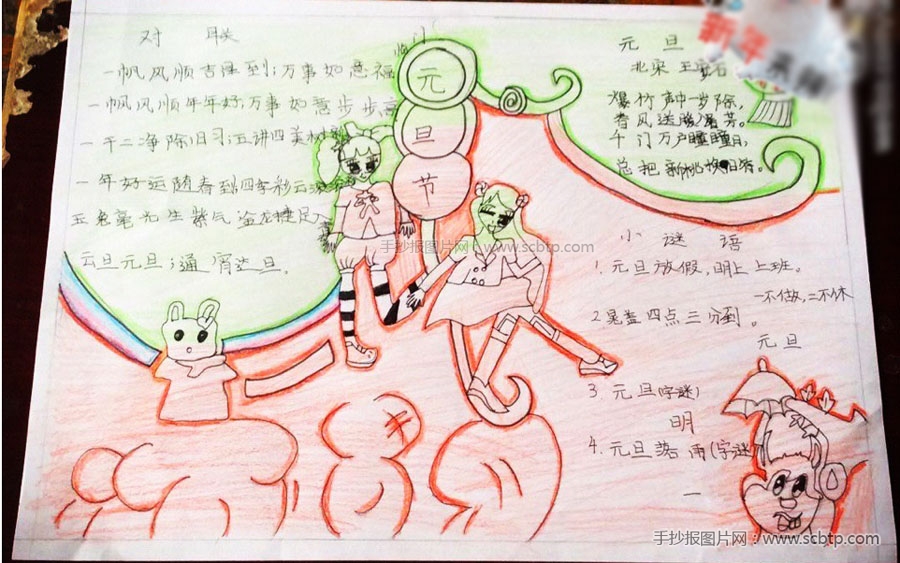 对 联
临门
一帆风顺吉星到；万事如意福
一帆风顺年年好；万事如意步步高
一干二净除旧习；五讲四美树新
一年好运随春到四季彩云滚滚来
玉兔毫光生紫气金龙捷足
云旦元旦；通宵达旦。
元
旦
节
元 旦
北宋 王安石
爆竹声中一岁除，
春风送暖入屠苏。
千门万户曈曈日，
总把新桃换旧符。
新年
小 谜 语
1. 元旦放假，明上上班。
一不做，二不休
2 四点三分到。
元旦
3. 元旦(字谜)
明
4. 元旦落雨(字谜
一
手抄报图片网：www.scbtp.com
手抄报图片网：www.scbtp.com